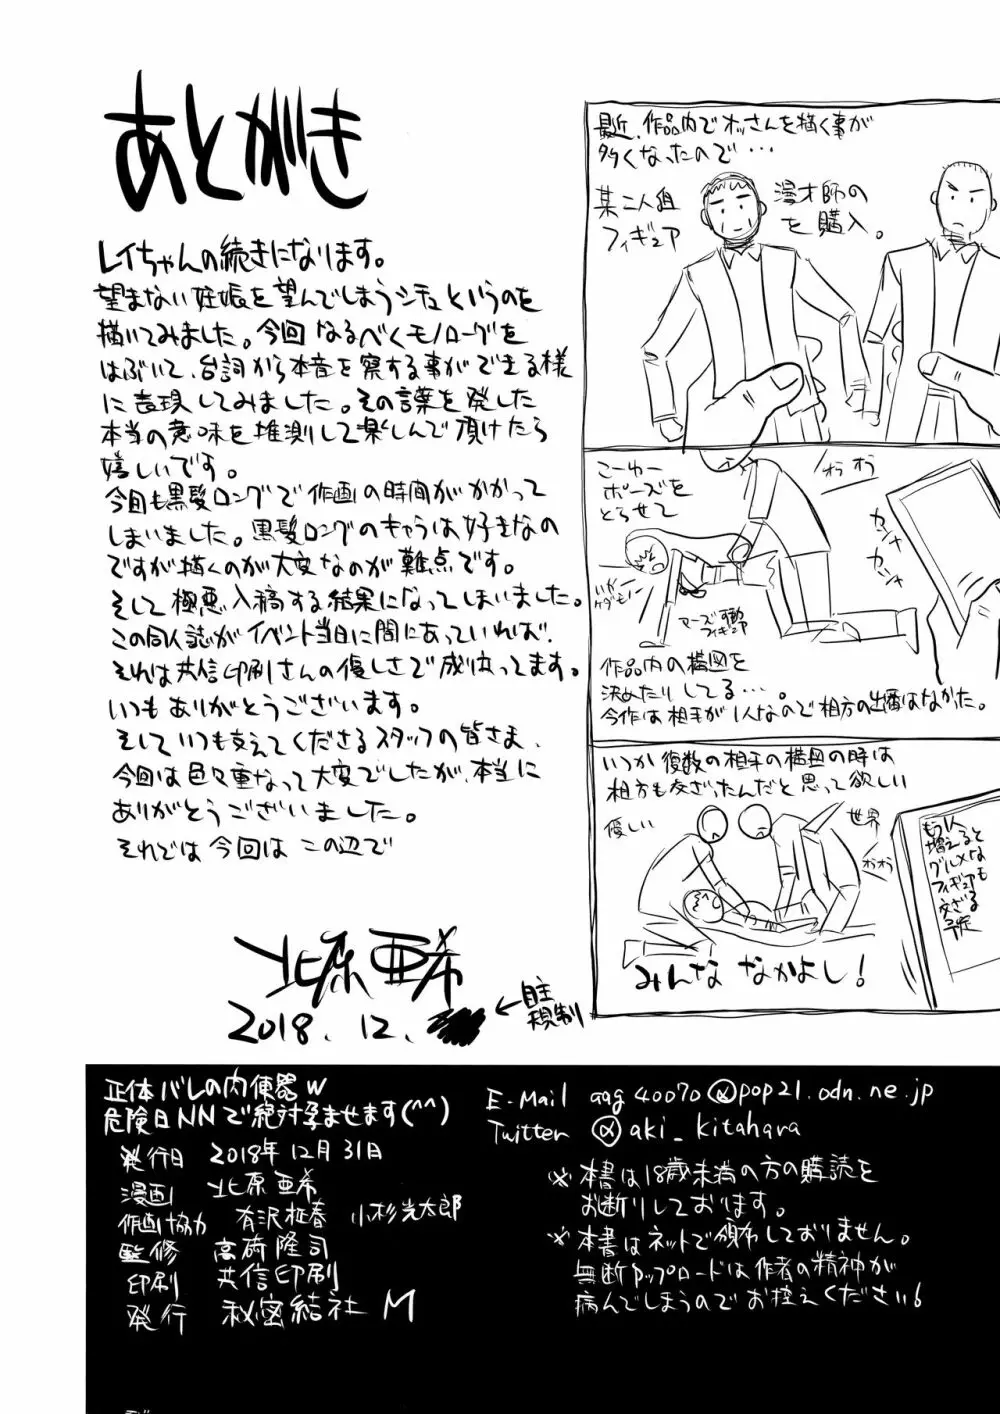 あとがき
レイちゃんの続きになります。
望まない妊娠を望んでしまうシチュというのを
描いてみました。今回なるべくモノローグを
はぶいて、台詞から本音を察する事ができる様
に表現してみました。その言葉を発した
本当の意味を推測して楽しんで頂けたら
嬉しいです。
今回も黒髪ロングで作画の時間がかかって
しまいました。黒髪ロングのキャラは好きなの
ですが描くのが大変なのが難点です。
そして極悪入稿する結果になってしまいました。
この同人誌がイベント当日に間にあっていれば、
それは共信印刷さんの優しさで成り立ってます。
いつもありがとうございます。
そしていつも支えてくださるスタッフの皆さま、
今回は色々重なって大変でしたが、本当に
ありがとうございました。
それでは今回はこの辺で
北原亜希
2018.12.
←自主
規制
最近、作品内でオッさんを描く事が
多くなったので…
某二人組
漫才師の
フィギュア
を購入。
こーゆー
ポーズを
とらせて
オラオラ
カシャ
カシャ
いやー
ケダモノー
可動
フィギュア
作品内の構図を
決めたりしてる…。
今作は相手が1人なので相方の出番はなかった。
いつか複数の相手の構図の時は
相方も交ざったんだと思って欲しい
優しい
世界
もう1人
増えると
グルメな
フィギュアも
交ざる
予定
みんな なかよし!
正体バレの肉便器w
危険日NNで絶対孕ませます(^^)
発行日 2018年12月31日
漫画 北原亜希
作画協力 有沢柾春 小杉光太郎
監修 高荷隆司
印刷 共信印刷
発行 秘密結社M
E-Mail aqg40070@pop21.odn.ne.jp
Twitter @aki_kitahara
※本書は18歳未満の方の購読を
お断りしております。
※本書はネットで頒布しておりません。
無断アップロードは作者の精神が
病んでしまうのでお控えください!